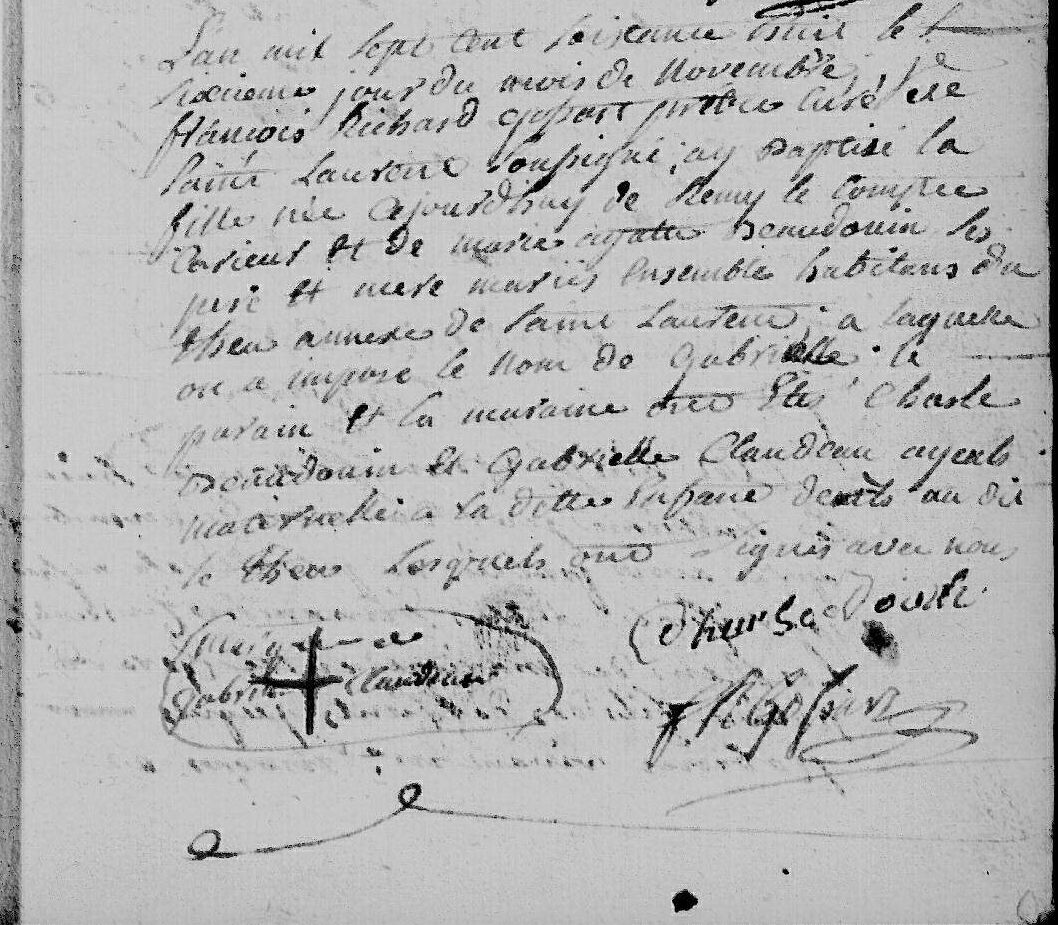 L'an mil sept cent soixante huit le
sixieme jour du mois de Novembre, je
françois Richard gossart prêtre curé de
Saint Laurent soussigné ay baptisé la
fille née ajourdhuy de Remy le Comptee
et de marie agatte Beaudouin les
pere et mere mariés ensemble habitans du
then annexe de Saint Laurent, a laquelle
on a imposé le Nom de Gabrielle. le
parain et la maraine ont Etés Charle
Beaudouin et Gabrielle Claudeau ayeuls
maternelle a la ditte Enfant au dit
le then Lesquels ont Signés avec nous
Charle
gabrielle Claudeau